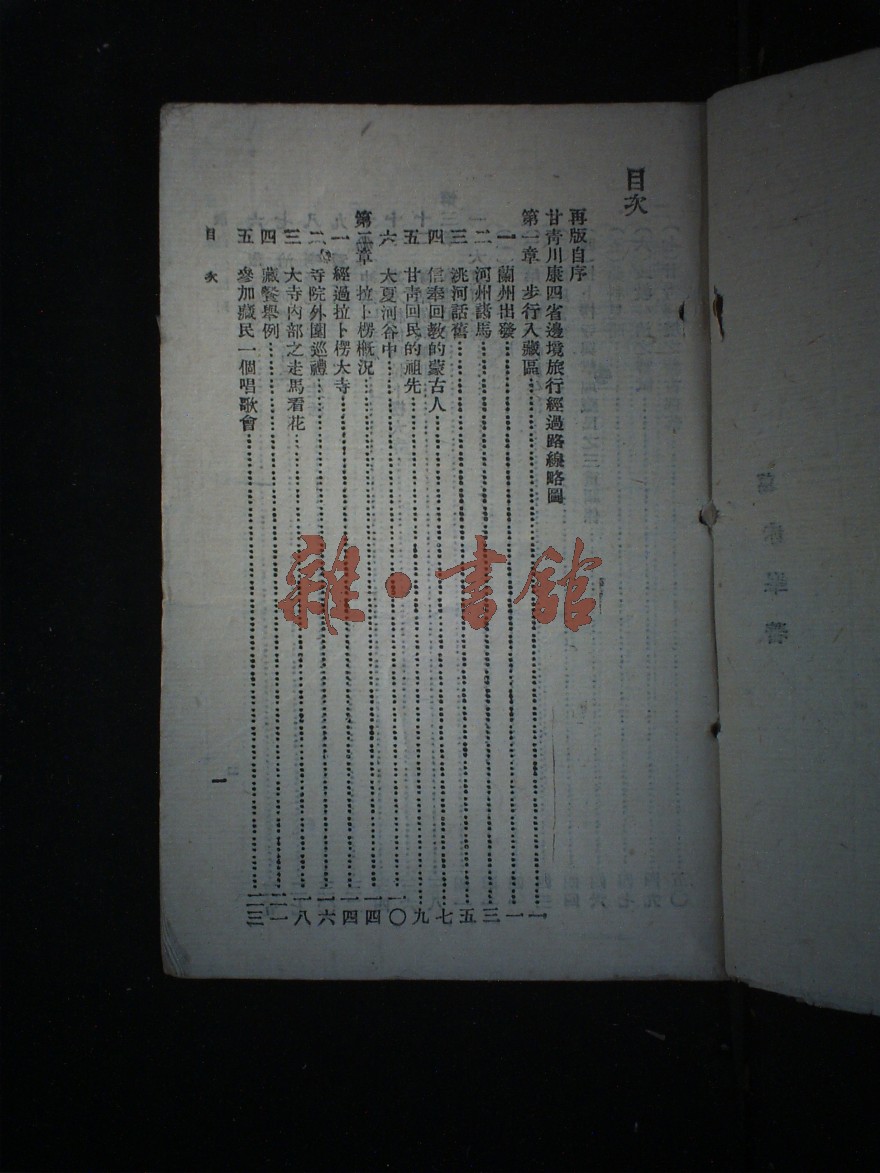 目次
再版自序
甘青川康四省邊境旅行經過路線略圖
第一章 步行入藏區……一
一 蘭州出發……一
二 河州談馬……三
三 洮河話舊……五
四 信奉回教的蒙古人……七
五 甘青回民的祖先……九
六 大夏河谷中……一〇
第二章 拉卜楞概況……一四
一 經過拉卜楞大寺……一四
二 寺院外圍巡禮……一六
三 大寺內部之走馬看花……一八
四 藏餐舉例……二一
五 參加藏民一個唱歌會……二三
目次
一
雜·書館